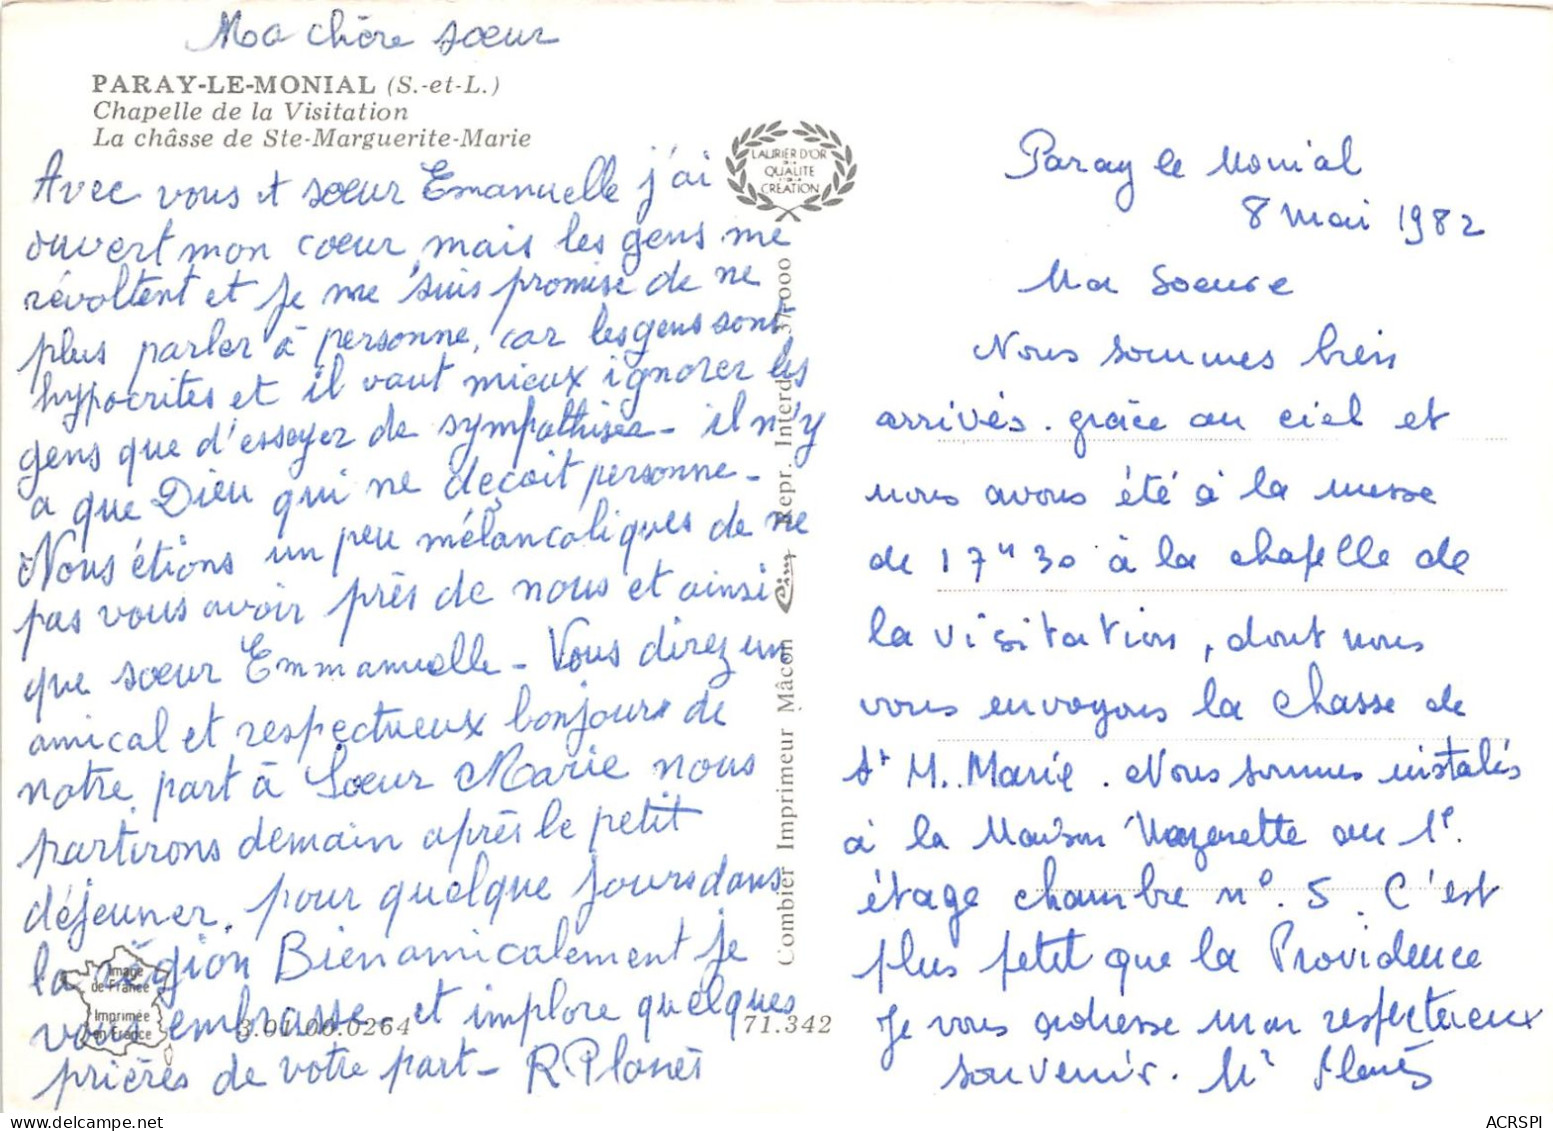 Ma chère sœur
PARAY-LE-MONIAL (S.-et-L.)
Chapelle de la Visitation
La châsse de Ste-Marguerite-Marie
Avec vous et sœur Emanuelle j'ai
ouvert mon cœur, mais les gens me
révoltent et je me suis promise de ne
plus parler à personne, car les gens sont
hypocrites et il vaut mieux ignorer les
gens que d'essayer de sympathiser - il n'y
a que Dieu qui ne deçoit personne -
Nous étions un peu mélancoliques de ne
pas vous avoir près de nous et ainsi
que sœur Emmanuelle - Vous direz un
amical et respectueux bonjours de
notre part à Sœur Marie nous
partirons demain après le petit
déjeuner, pour quelque jours dans
la région Bien amicalement je
vous embrasse et implore quelques
prières de votre part - R Planès
Image
de France
Imprimée
en France
3.01.00.0264
71.342
LAURIER D'OR
DE LA
QUALITE
ET DE LA
CREATION
Combier Imprimeur Mâcon Cim Repr. Interd. 37.000
Paray le Monial
8 mai 1982
Ma Soeure
Nous sommes bien
arrivés. grâce au ciel et
nous avons été à la messe
de 17 H 30 à la chapelle de
la visitation, dont nous
vous envoyons la chasse de
St M. Marie. Nous sommes instalés
à la Maison Nazarette au 1e.
étage chambre n°. 5. C'est
plus petit que la Providence
Je vous adresse mon respectueux
souvenir. Mr Planès
ACRSPI